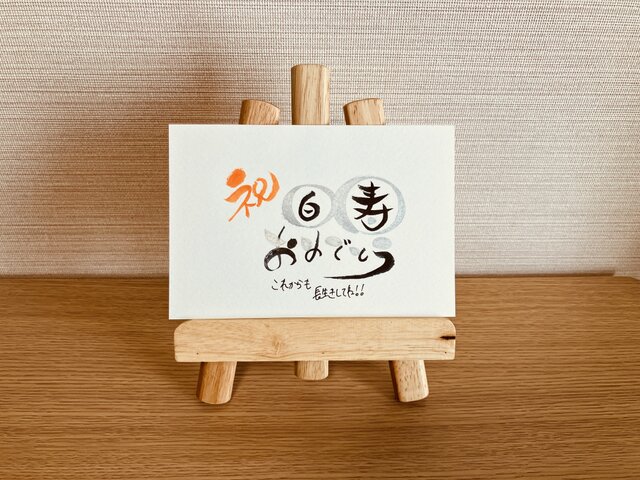 祝 白寿
おめでとう
これからも
長生きしてね!!